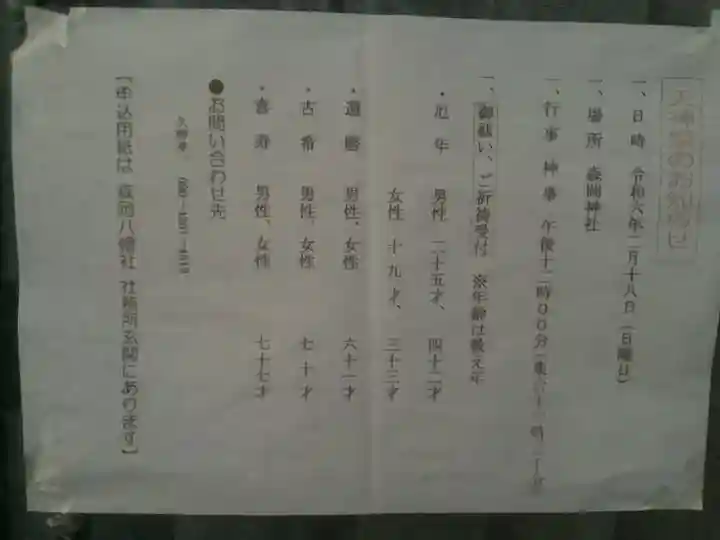 のお知らせ
一、日時 令和六年二月十八日（日曜日）
一、場所 森岡神社
一、行事 神事 午後十二時００分（集合十一時
一、御祓い、ご祈祷受付 ※年齢は数え年
・厄年 男性 二十五才、 四十二才
女性 十九才、 三十三才
・還暦 男性、女性 六十一才
・古希 男性、女性 七十才
・喜寿 男性、女性 七十七才
●お問い合わせ先
【申込用紙は 八幡社 社務所玄関にあります】